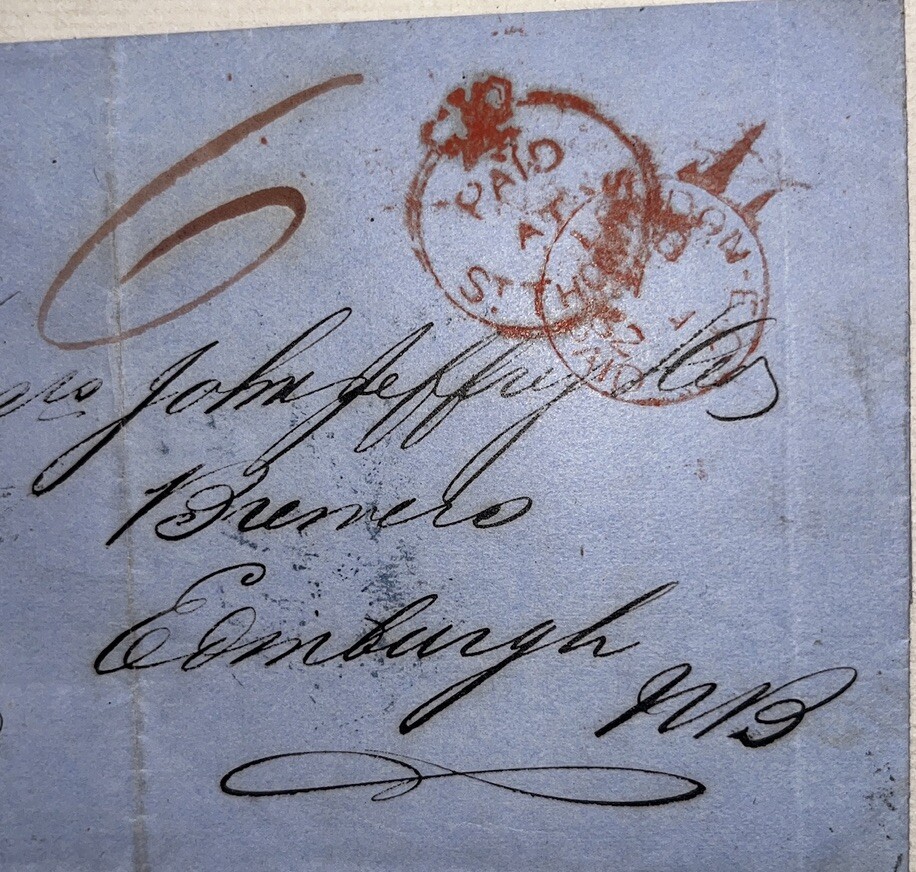 6
PAID
AT
ST THOMAS
LONDON-E.C
PAID
John Jeffrey & Co
Brewers
Edinburgh
NB